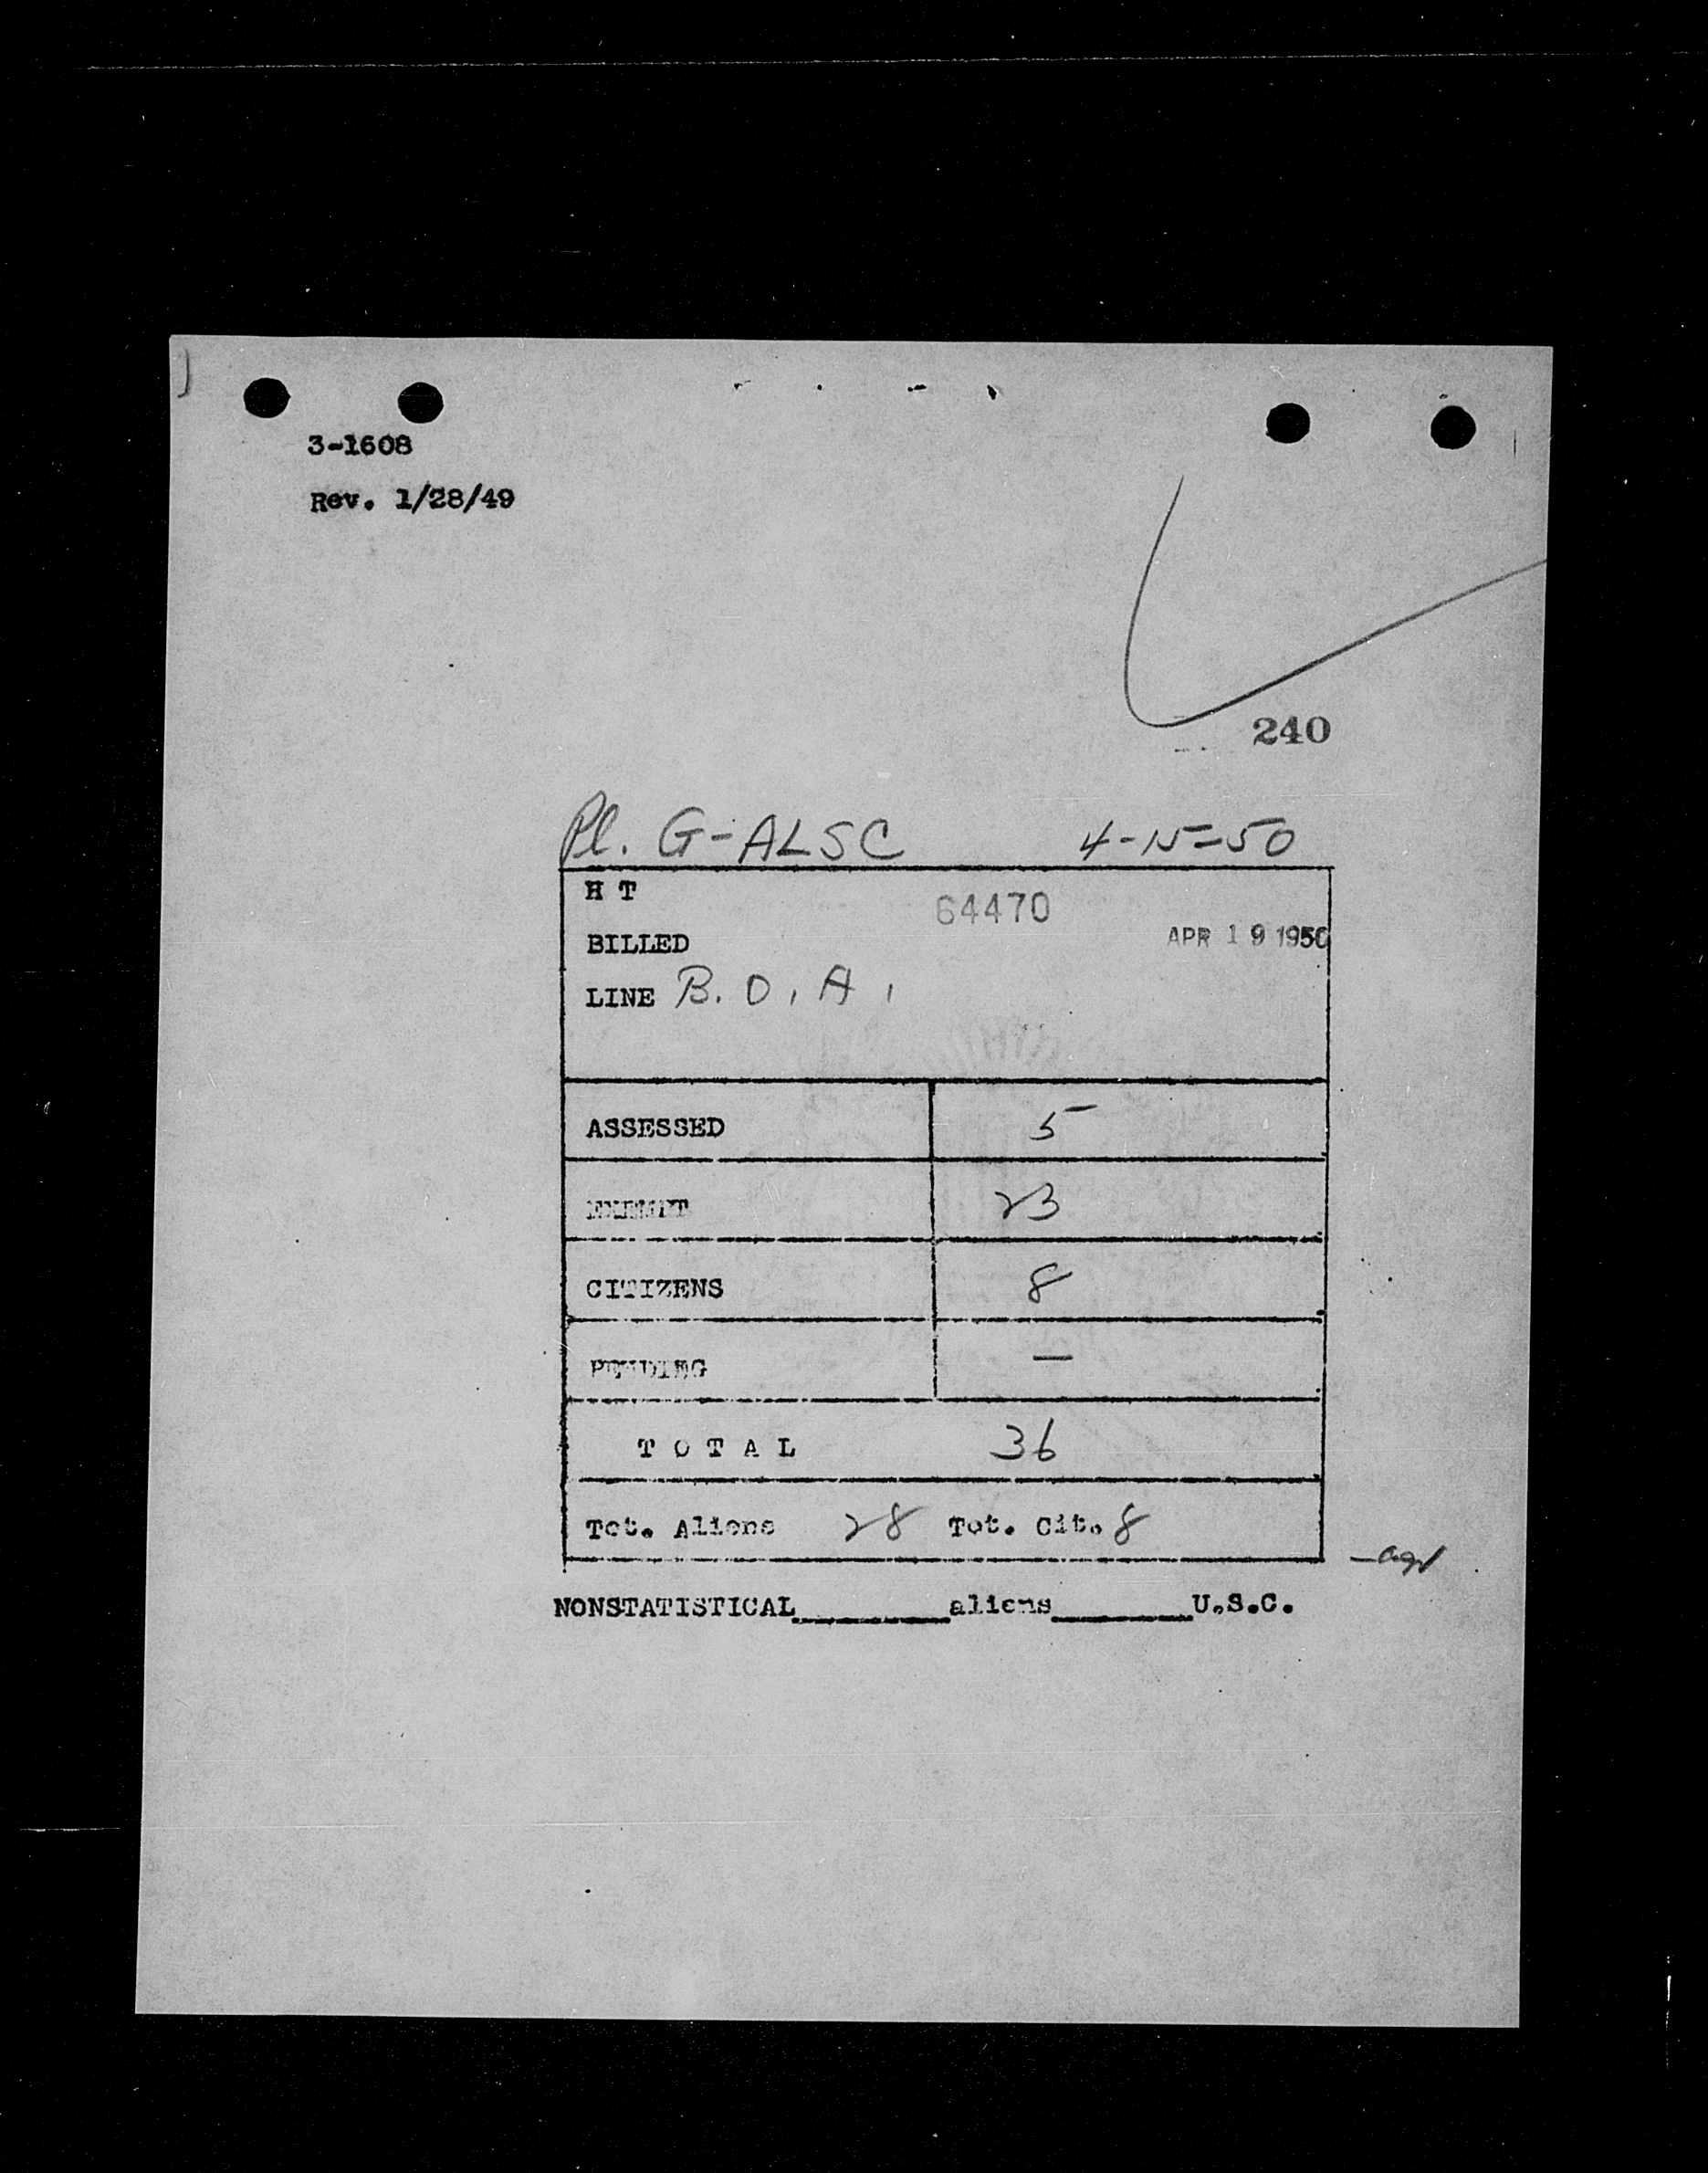 3-1608
Rev. 1/28/49
240
Pl. G-ALSC 4-15-50
H T
64470
BILLED APR 19 1950
LINE B.O.A.
ASSESSED 5
EXEMPT 23
CITIZENS 8
PENDING —
TOTAL 36
Tot. Aliens 28 Tot. Cit. 8
NONSTATISTICAL________aliens________U.S.C.